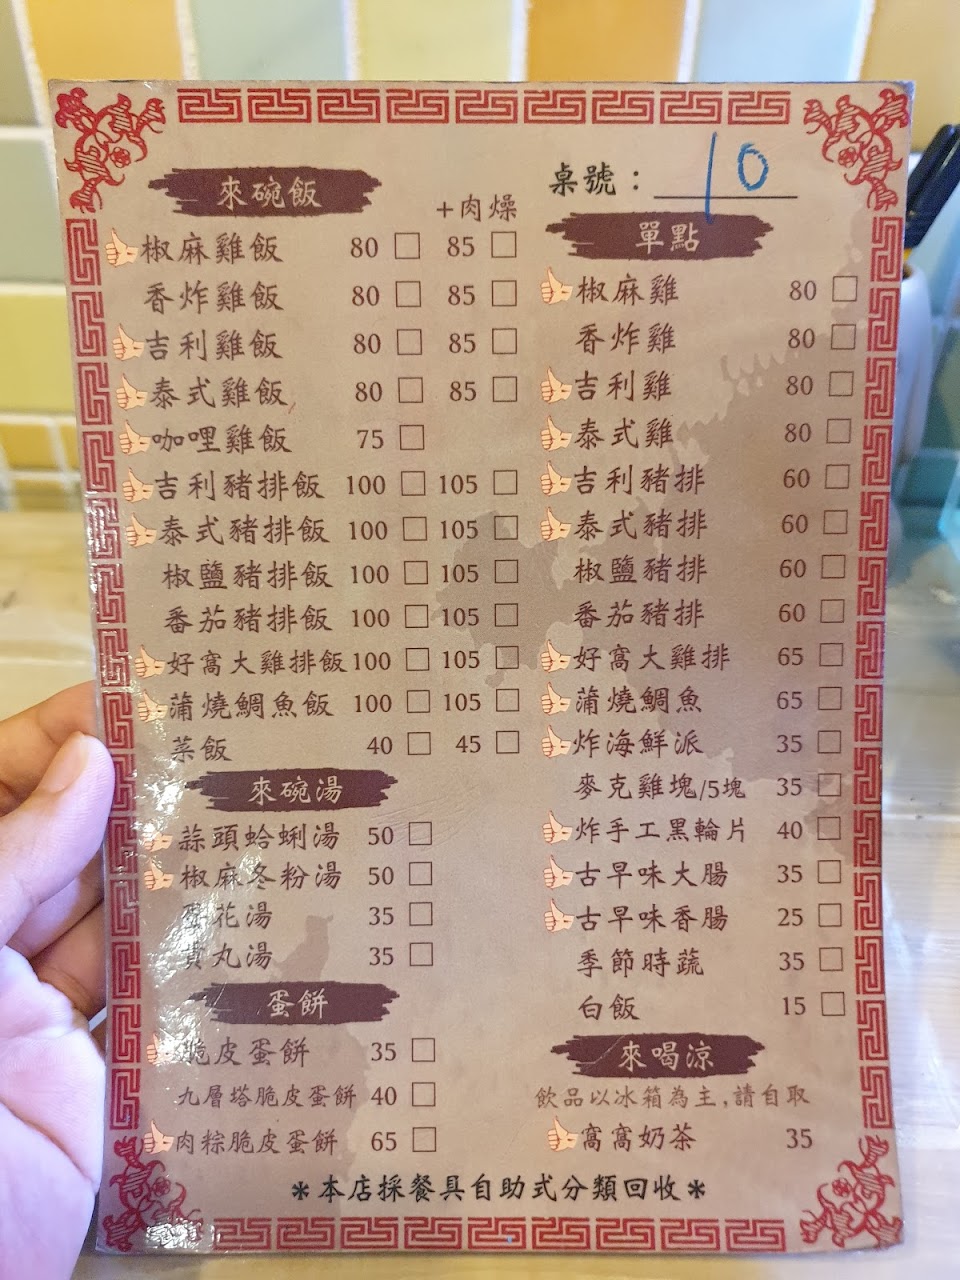 桌號： 10
來碗飯
+肉燥
椒麻雞飯 80 □ 85 □
香炸雞飯 80 □ 85 □
吉利雞飯 80 □ 85 □
泰式雞飯 80 □ 85 □
咖哩雞飯 75 □
吉利豬排飯 100 □ 105 □
泰式豬排飯 100 □ 105 □
椒鹽豬排飯 100 □ 105 □
番茄豬排飯 100 □ 105 □
好窩大雞排飯 100 □ 105 □
蒲燒鯛魚飯 100 □ 105 □
菜飯 40 □ 45 □
來碗湯
蒜頭蛤蜊湯 50 □
椒麻冬粉湯 50 □
花湯 35 □
丸湯 35 □
蛋餅
脆皮蛋餅 35 □
九層塔脆皮蛋餅 40 □
肉粽脆皮蛋餅 65 □
單點
椒麻雞 80 □
香炸雞 80 □
吉利雞 80 □
泰式雞 80 □
吉利豬排 60 □
泰式豬排 60 □
椒鹽豬排 60 □
番茄豬排 60 □
好窩大雞排 65 □
蒲燒鯛魚 65 □
炸海鮮派 35 □
麥克雞塊/5塊 35 □
炸手工黑輪片 40 □
古早味大腸 35 □
古早味香腸 25 □
季節時蔬 35 □
白飯 15 □
來喝涼
飲品以冰箱為主,請自取
窩窩奶茶 35
＊本店採餐具自助式分類回收＊